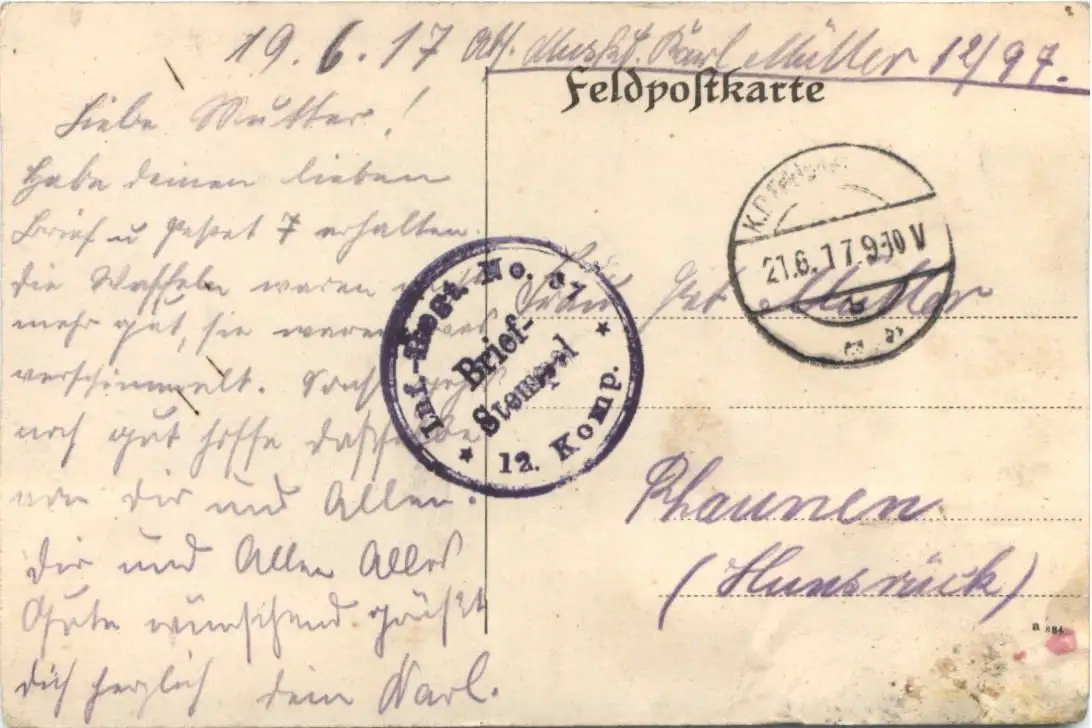 19.6.17 Abs. Musket. Karl Müller 12/97.
Feldpostkarte
Liebe Mutter!
Habe deinen lieben
Brief u Paket 7 erhalten
die Waffeln waren
mehr gut, sie waren
verschimmelt. Sonst
noch gut hoffe dasselbe
von Dir und Allen.
Dir und Allen Alles
Gute wünschend grüßt
dich herzlich dein Karl.
Inf.-Regt. No. 97
Brief-
Stempel
12. Komp.
K.D. Feldpost
21.6.17.9-10 V
Frau Müller
Rhaunen
(Hunsrück)
a 884